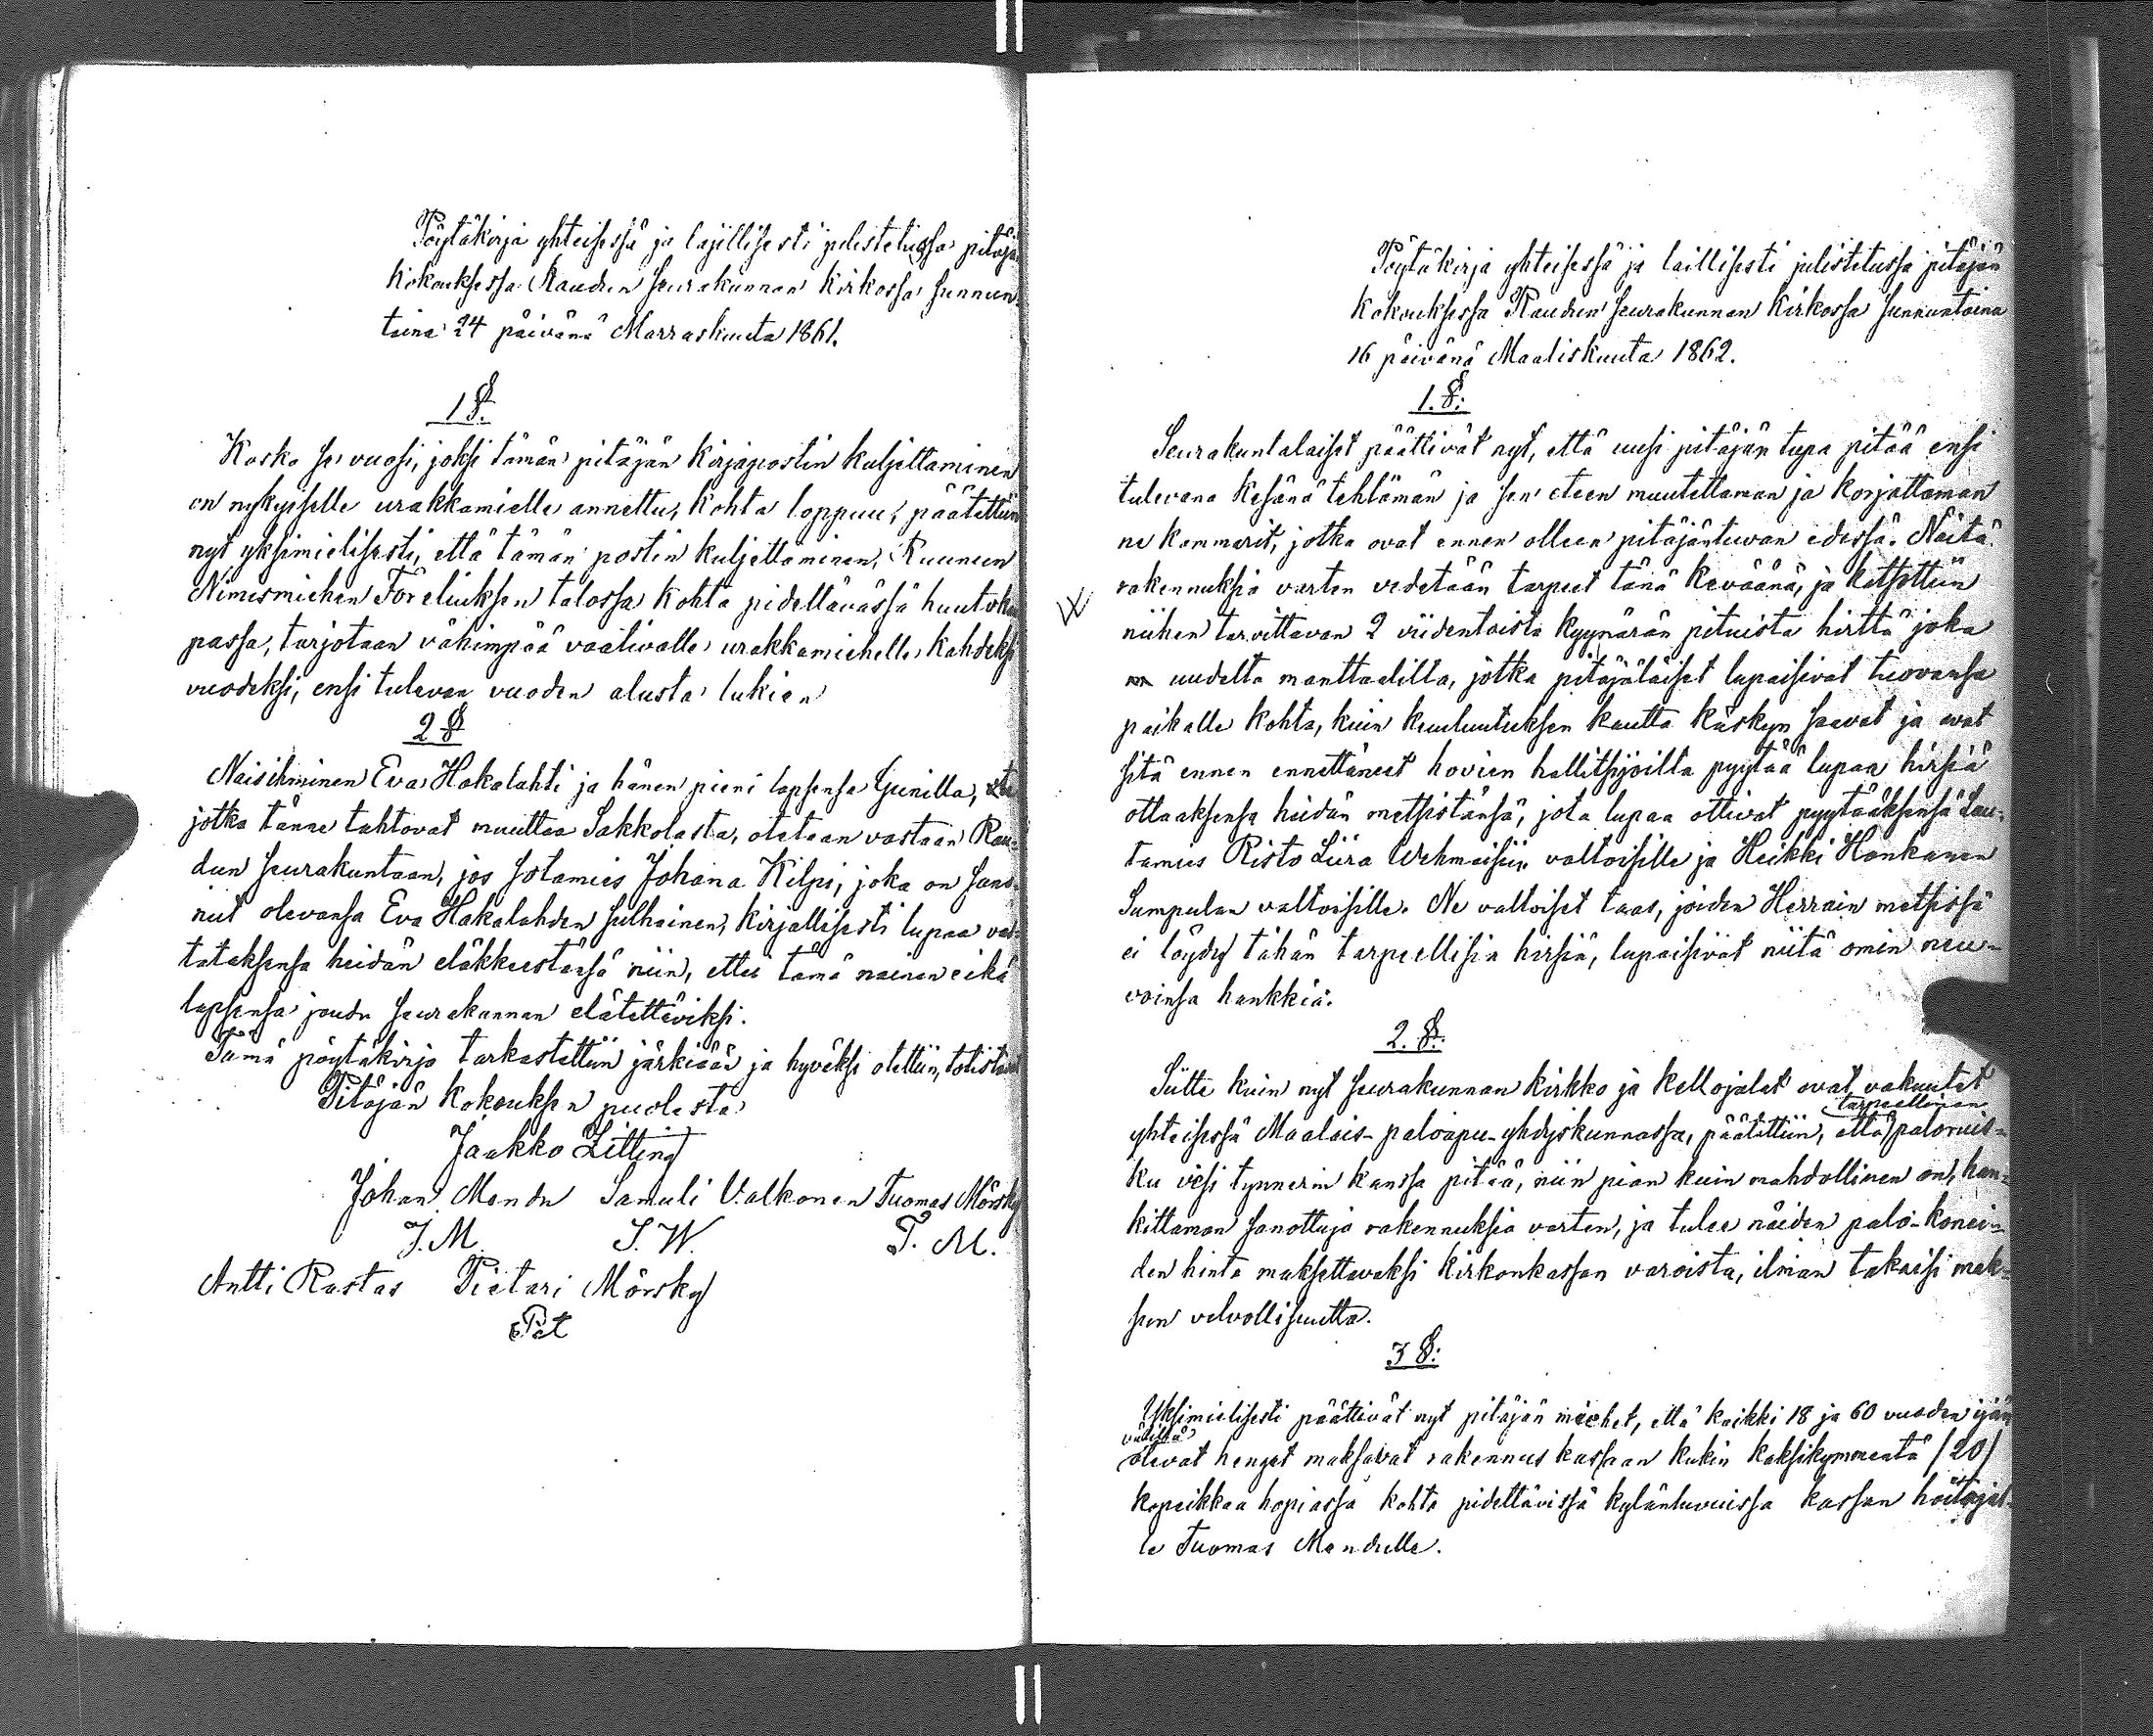 Pöytäkirja yhteisessä ja laillisesti julistetussa pitäjän
kokouksessa Raudun seurakunnan kirkossa sunnun-
taina 24 päivänä Marraskuuta 1861.
1 §.
Koska se vuosi, joksi tämän pitäjän kirjapostin kuljettaminen
on nykyiselle urakkamielle annettu, kohta loppuu, päätettiin
nyt yksimielisesti, että tämän postin kuljettaminen, Ruunun
Nimismiehen Foreliuksen talossa kohta pidettävässä huutokau
passa, tarjotaan vähimpää vaativalle urakkamiehelle kahdeksi
vuodeksi, ensi tulevan vuoden alusta lukien
2 §
Naisihminen Eva Hakalahti ja hänen pieni lapsensa Gunilla,
jotka tänne tahtovat muuttaa Sakkolasta, otetaan vastaan Rau-
dun seurakuntaan, jos sotamies Johana Kilpi, joka on sano-
nut olevansa Eva Hakalahden sulhainen, kirjallisesti lupaa vas-
tataksensa heidän eläkkeestänsä niin, ettei tämä nainen eikä
lapsensa joudu seurakunnan elätettäviksi.
Tämä pöytäkirja tarkastettiin järkiään ja hyväksi otettiin, totistavat
Pitäjän kokouksen puolesta
Jaakko Litting
Johan Mandu Samuli Valkonen Tuomas Mörsky
J. M. S. W. T. M.
Antti Rastas Pietari Mörsky
Pöytäkirja yhteisessä ja laillisesti julistetussa pitäjän
kokouksessa Raudun seurakunnan kirkossa sunnuntaina
16 päivänä Maaliskuuta 1862.
1. §:
Seurakuntalaiset päättivät nyt, että uusi pitäjän tupa pitää ensi
tulevana kesänä tehtämän ja sen eteen muutettaman ja korjattaman
ne kammarit, jotka ovat ennen olleen pitäjäntuvan edessä. Näitä
rakennuksia varten vedetään tarpeet tänä keväänä, ja katsottiin
niihen tarvittavan 2 viidentoista kyynärän pituista hirttä joka
uudelta manttaalilta, jotka pitäjäläiset lupaisivat tuovansa
paikalle kohta, kuin kuuluutuksen kautta käskyn saavat ja ovat
sitä ennen ennättäneet hovien hallitsijoilta pyytää lupaa hirsiä
ottaaksensa heidän metsistänsä, jota lupaa ottivat pyytääksensä Lau-
tamies Risto Liira Wehmaisiin valtoisille ja Heikki Honkanen
Sumpulan valtoisille. Ne valtoiset taas, joiden Herrain metsissä
ei löydy tähän tarpeellisia hirsiä, lupaisivat niitä omin neu-
voinsa hankkia.
2. §.
Siitte kuin nyt seurakunnan kirkko ja kellojalat ovat vakuutet
tarpeellinen
yhteisessä Maalais-paloapu-yhdyskunnassa, päätettiin, että paloruis-
ku vesi tynnerin kanssa pitää, niin pian kuin mahdollinen on, han-
kittaman sanottuja rakennuksia varten, ja tulee näiden palo-konei-
den hinta maksettavaksi kirkonkassan varoista, ilman takaisi mak-
sun velvollisuutta.
3 §:
Yksimielisesti päättivät nyt pitäjän miehet, että kaikki 18 ja 60 vuoden ijän
välissä
olevat henget maksavat rakennus kassaan kukin kaksikymmentä /20/
kopeikkaa hopiassa kohta pidettävissä kyläntuvuissa kassan hoitajal-
le Tuomas Mandulle.